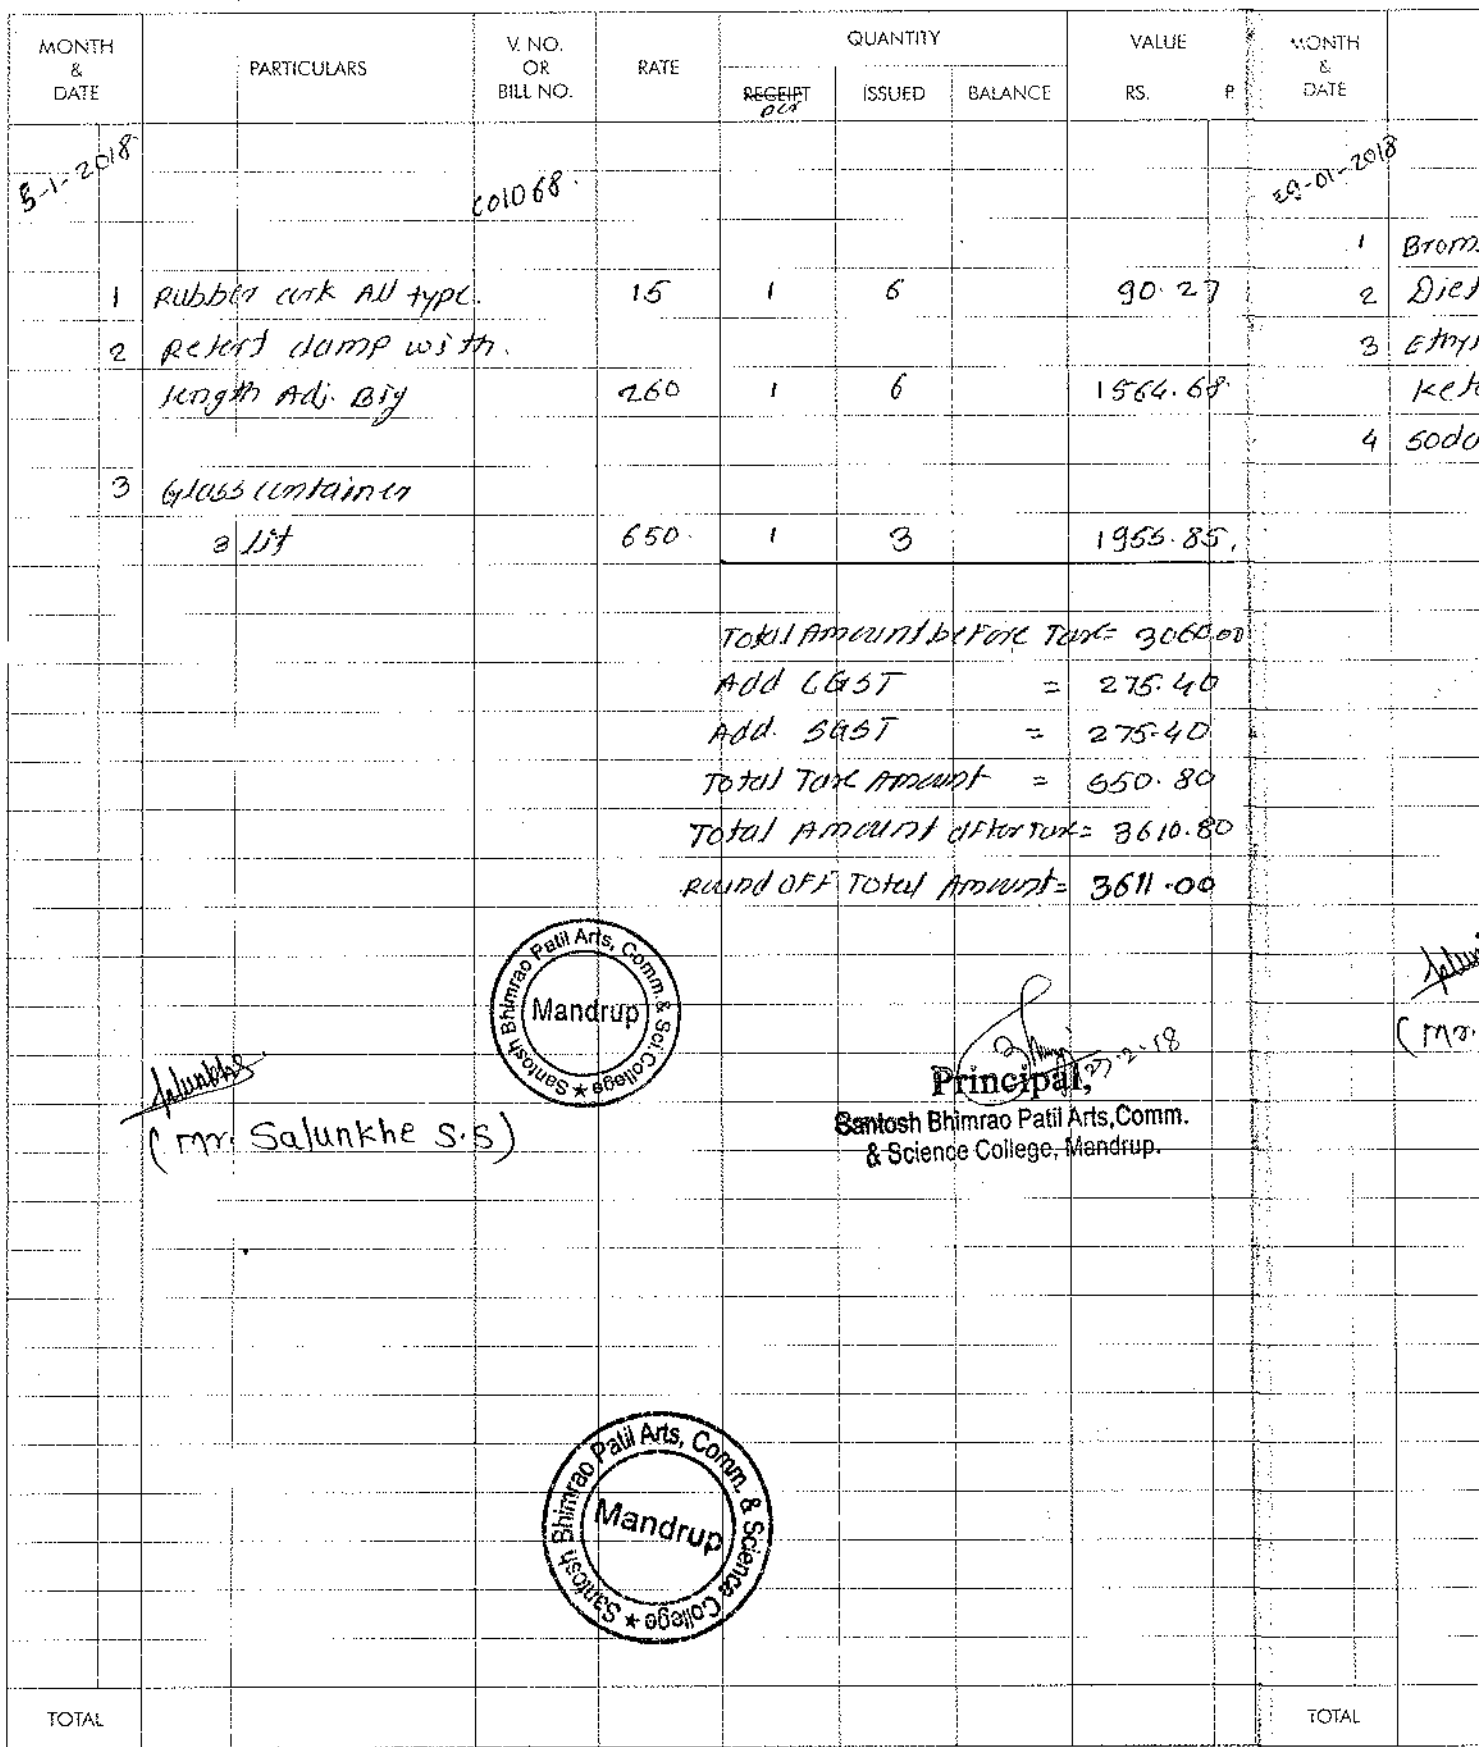 MONTH & DATE PARTICULARS V. NO. OR BILL NO. RATE QUANTITY VALUE
RECEIPT ISSUED BALANCE RS. P.
5-1-2018
C01068.
1 Rubber cork All type. 15 1 6 90.27
2 Retort clamp with.
length Adj. Big 260 1 6 1564.68
3 Glass container
3 lit 650. 1 3 1955.85.
Total Amount before Tax= 3060.00
Add CGST = 275.40
Add. SGST = 275.40
Total Tax Amount = 550.80
Total Amount after Tax= 3610.80
Round OFF Total Amount= 3611.00
Santosh Bhimrao Patil Arts, Comm. & Sci. College ★
Mandrup
Salunkhe
(Mr. Salunkhe S.S)
27-2-18
Principal,
Santosh Bhimrao Patil Arts,Comm.
& Science College, Mandrup.
Santosh Bhimrao Patil Arts, Comm. & Science College ★
Mandrup
TOTAL
MONTH & DATE
29-01-2018
1 Brom
2 Diet
3 Ethyl
Keto
4 soda
(Mr.
TOTAL